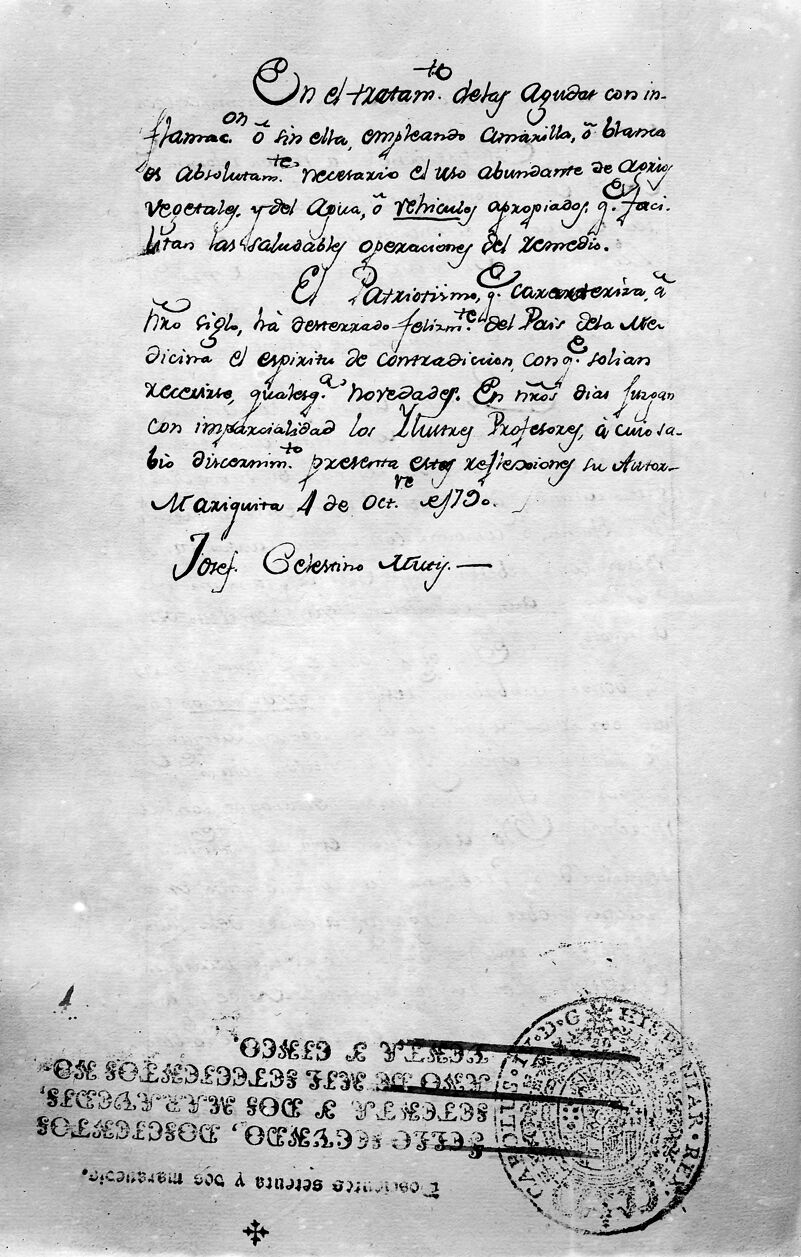 En el tratam.to delas Agudas con in-
flamac.on ô sin ella, empleando Amarilla, ô blanca
es absolutam.te necesario el uso abundante de Agrios
vegetales, y del Agua, ô vehiculos apropiados, q.e faci-
litan las saludables operaciones del remedio.
El Patriotismo, q.e caracteriza, â
nr̃o siglo, hà desterrado felizm.te del Pais dela Me-
dicina el espiritu de contradiccion, con q.e solian
recevirse, qualesq.a novedades. En nr̃os dias juzgan
con imparcialidad los Ilustres Profesores, â cuio sa-
bio discernim.to presenta estas reflexiones su Autor-
Mariquita 4 de Oct.re de 1790.
Josef Celestino Mutis. —
1
CAROLUS · IV · D · G · HISPANIAR · REX
✣
Doscientos setenta y dos maravedis.
SELLO SEGVNDO, DOSCIENTOS
SETENTA Y DOS MARAVEDIS,
AÑO DE MIL SETECIENTOS NO-
VENTA Y CINCO.